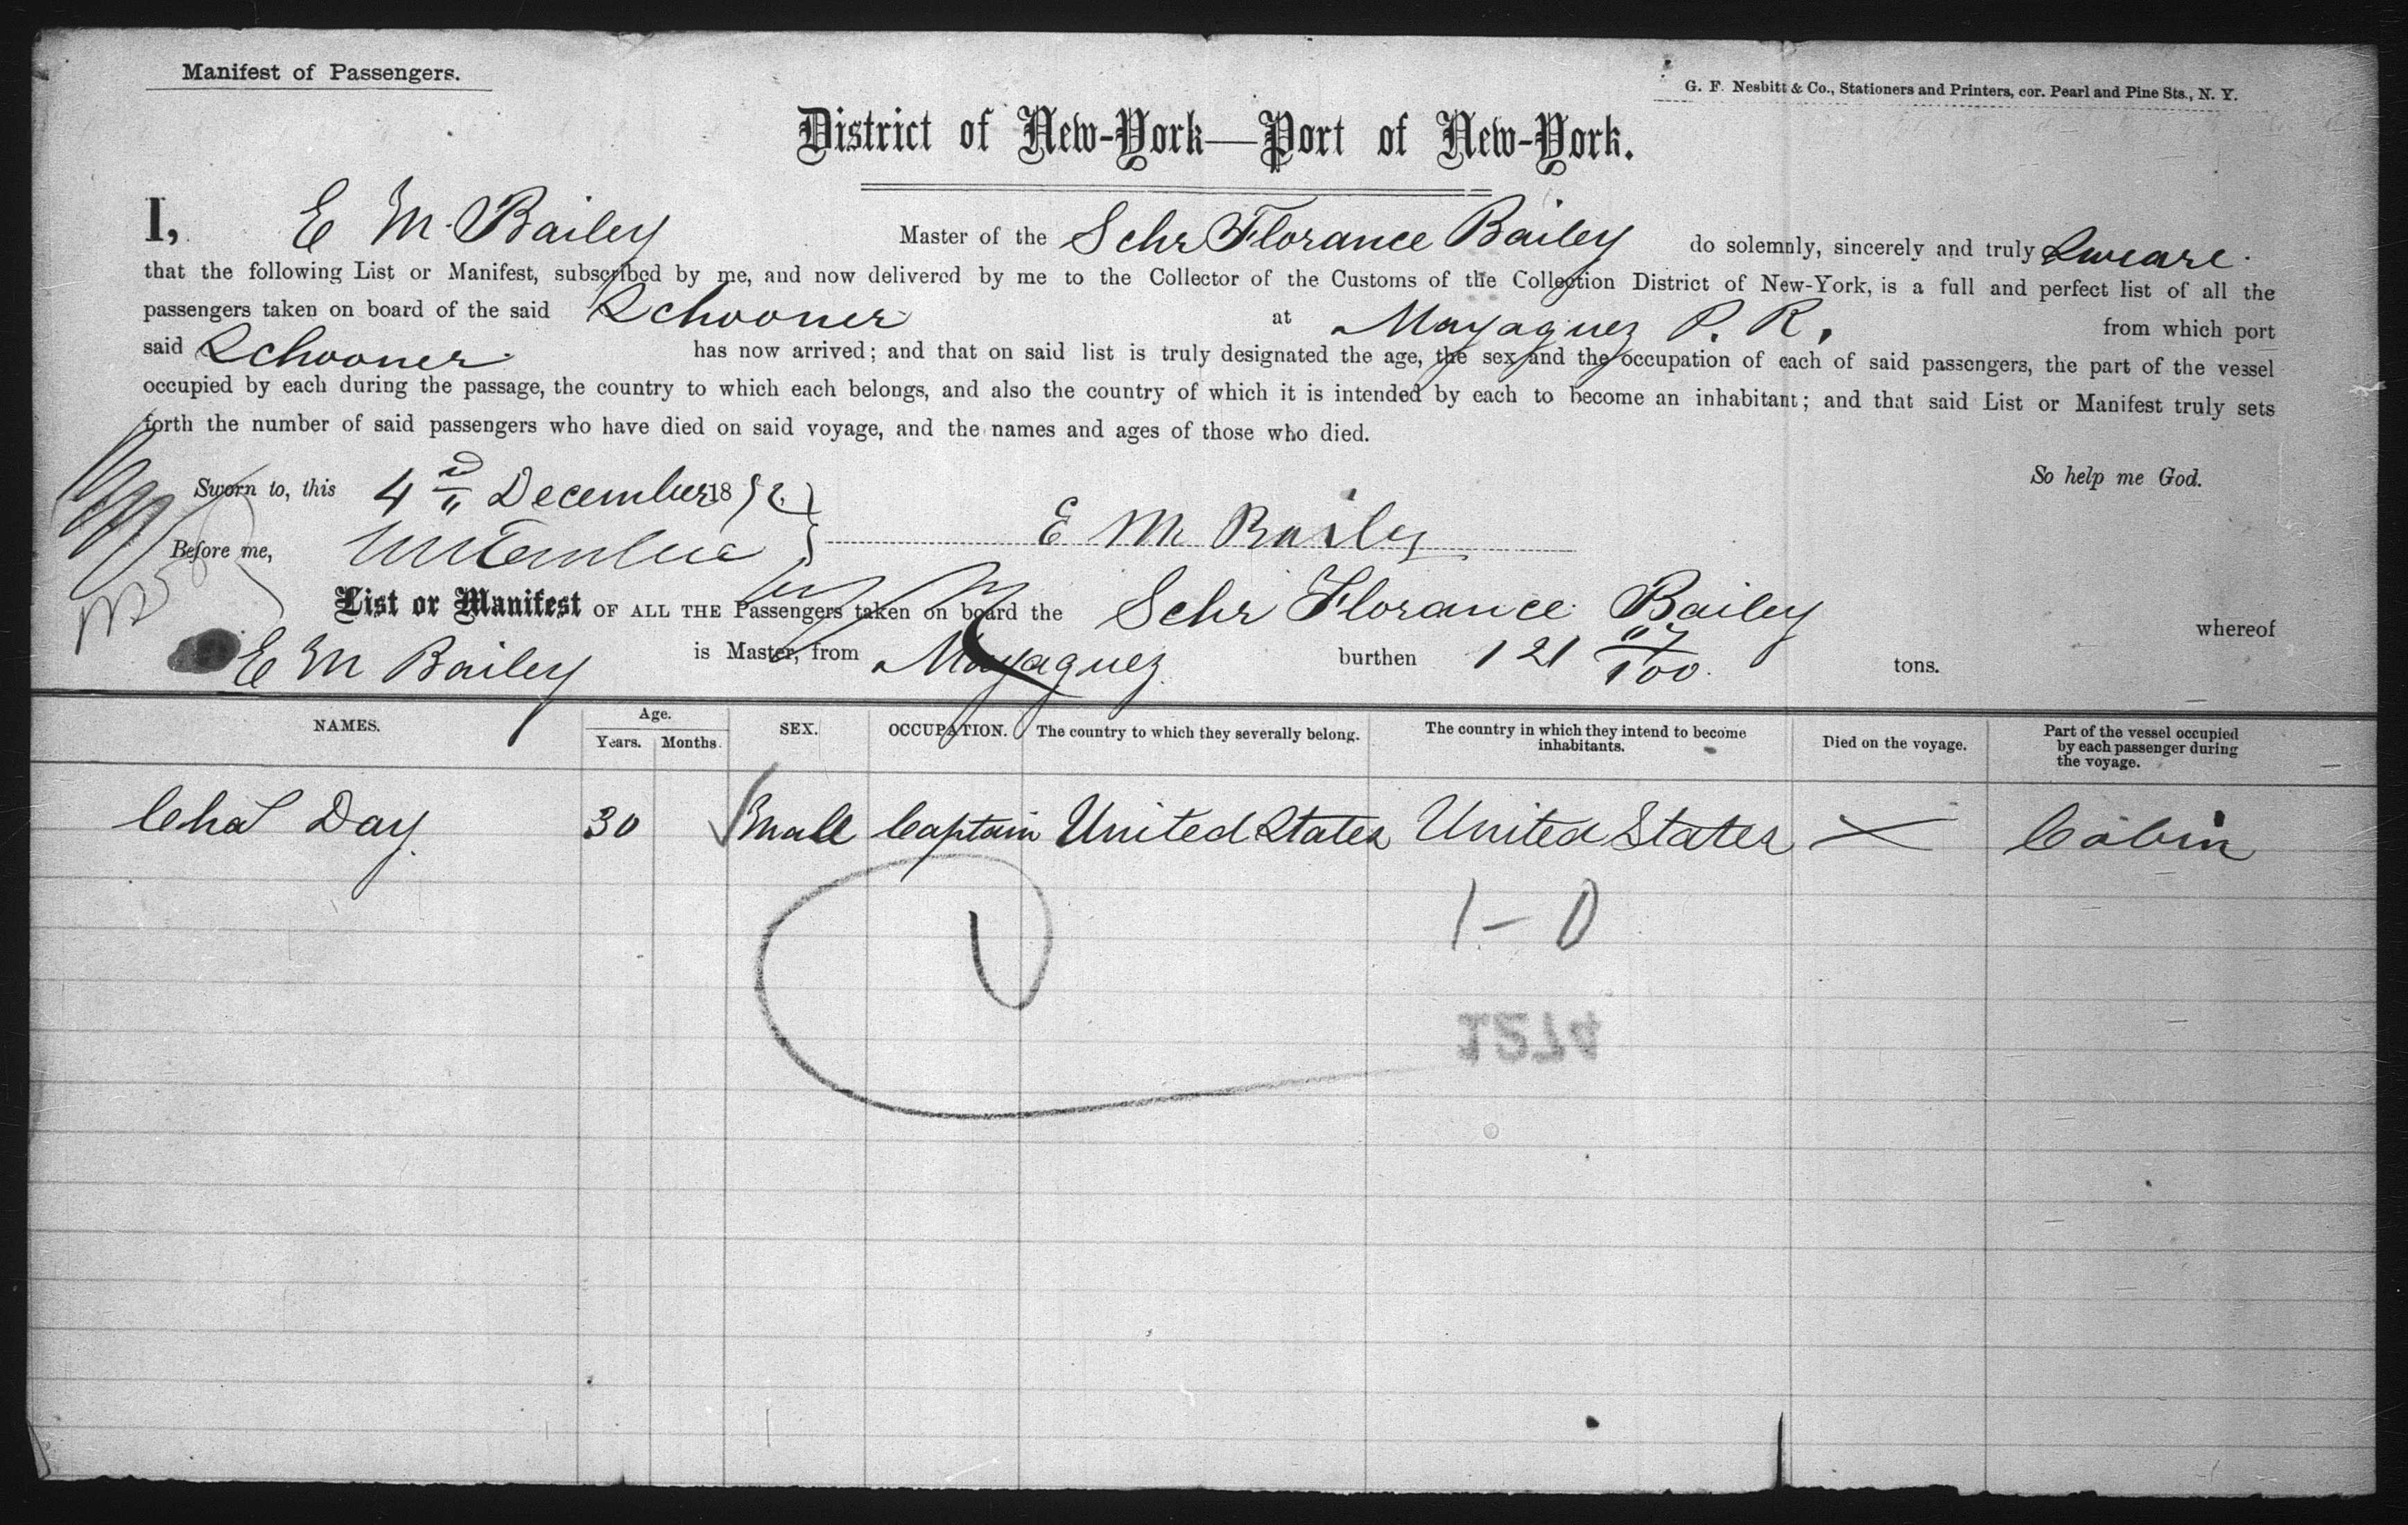 Manifest of Passengers.
G. F. Nesbitt & Co., Stationers and Printers, cor. Pearl and Pine Sts., N. Y.
District of New-York—Port of New-York.
I, E M. Bailey Master of the Schr Florance Bailey do solemnly, sincerely and truly Sweare.
that the following List or Manifest, subscribed by me, and now delivered by me to the Collector of the Customs of the Collection District of New-York, is a full and perfect list of all the
passengers taken on board of the said Schooner at Mayaguez P. R. from which port
said Schooner has now arrived; and that on said list is truly designated the age, the sex and the occupation of each of said passengers, the part of the vessel
occupied by each during the passage, the country to which each belongs, and also the country of which it is intended by each to become an inhabitant; and that said List or Manifest truly sets
forth the number of said passengers who have died on said voyage, and the names and ages of those who died.
So help me God.
Sworn to, this 4 December 18
Before me,
E M Bailey
List or Manifest OF ALL THE Passengers taken on board the Schr Florance Bailey whereof
E M Bailey is Master, from Mayaguez burthen 121 07/100 tons.
NAMES. Age. Years. Months. SEX. OCCUPATION. The country to which they severally belong. The country in which they intend to become inhabitants. Died on the voyage. Part of the vessel occupied by each passenger during the voyage.
Chas Day 30 male Captain United States United States Cabin
1-0
1274